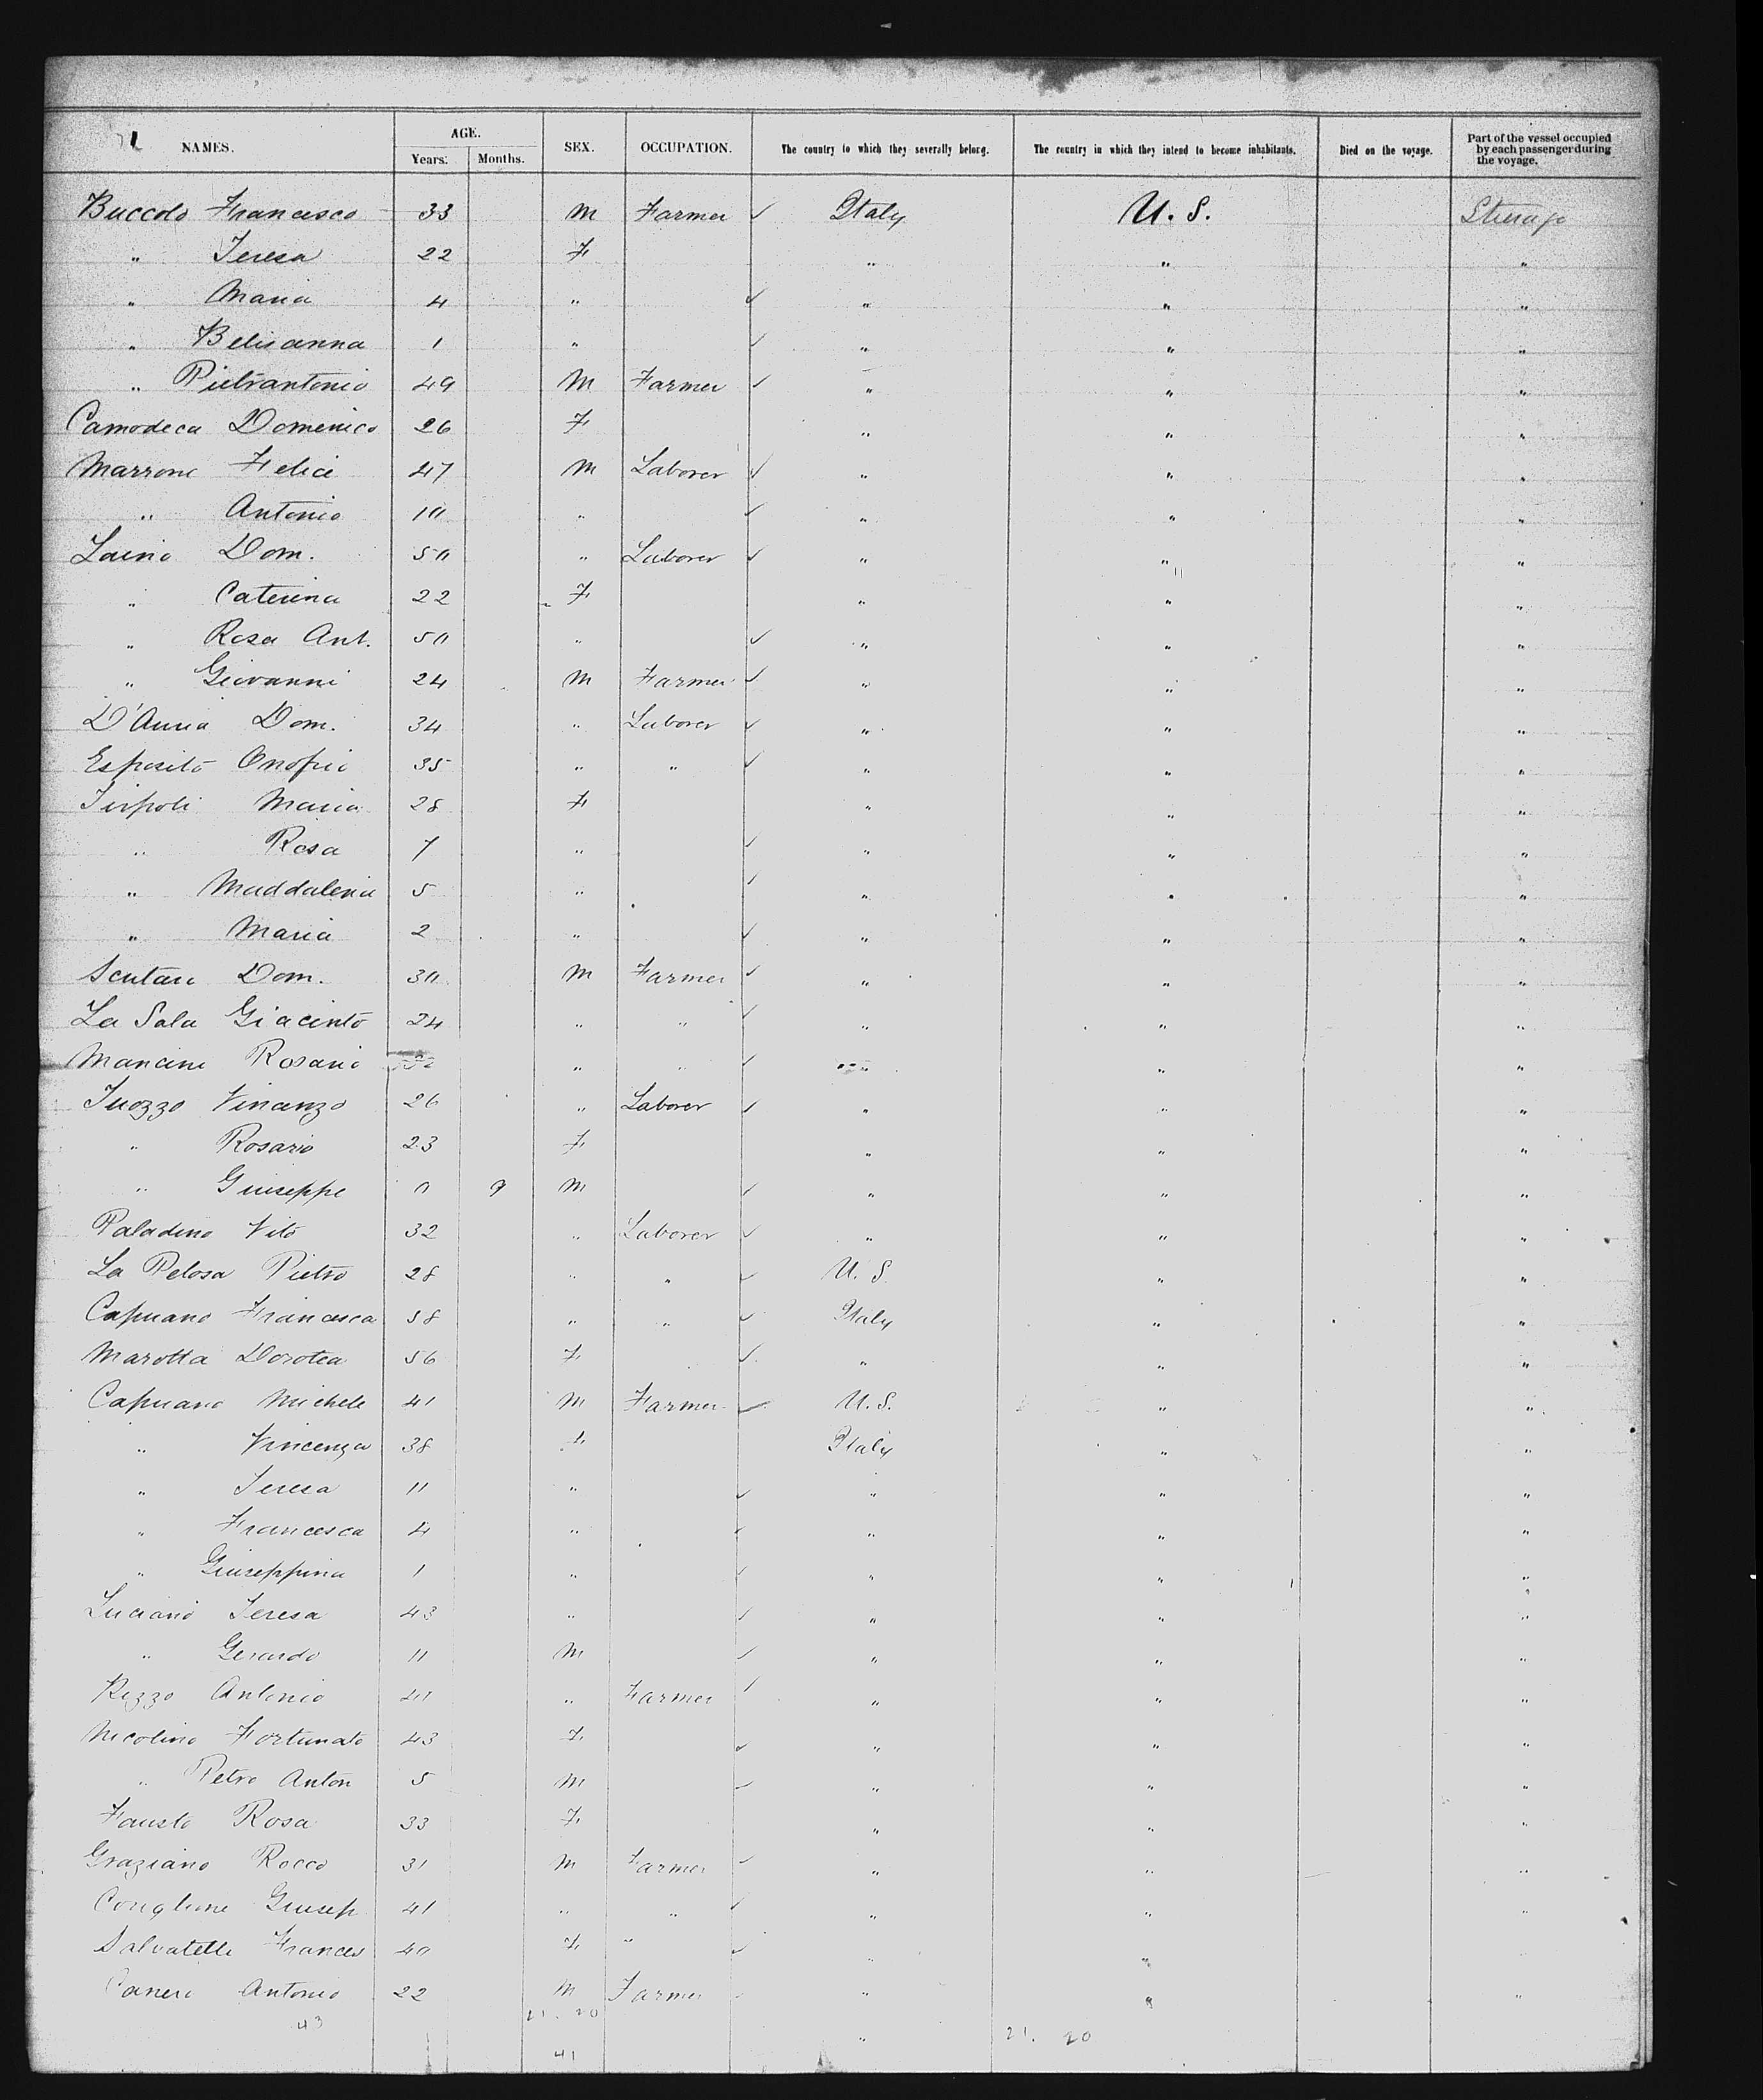 NAMES. AGE. SEX. OCCUPATION. The country to which they severally belong. The country in which they intend to become inhabitants. Died on the voyage. Part of the vessel occupied by each passenger during the voyage.
Years. Months.
Buccolo Francesco 33 M Farmer ✓ Italy U.S. Steerage
" Teresa 22 F " " "
" Maria 4 " ✓ " " "
" Belisanna 1 " ✓ " " "
" Pietrantonio 49 M Farmer ✓ " " "
Camodeca Domenico 26 F " " "
Marrone Felice 47 M Laborer ✓ " " "
" Antonio 10 " ✓ " " "
Laino Dom. 50 " Laborer ✓ " " "
" Caterina 22 F " " "
" Rosa Ant. 50 " ✓ " " "
" Giovanni 24 M Farmer ✓ " " "
D'Auria Dom. 34 " Laborer ✓ " " "
Esposito Onofrio 35 " " ✓ " " "
Tirpoli Maria 28 F " " "
" Rosa 7 " ✓ " " "
" Maddalena 5 " ✓ " " "
" Maria 2 " ✓ " " "
Scutari Dom. 30 M Farmer ✓ " " "
La Sala Giacinto 24 " " ✓ " " "
Mancini Rosario " " ✓ " " "
Iuozzo Vincenzo 26 " Laborer ✓ " " "
" Rosario 23 F " " "
" Giuseppe 0 9 M ✓ " " "
Paladino Vito 32 " Laborer ✓ " " "
La Pelosa Pietro 28 " " ✓ U.S. " "
Capuano Francesca 58 " " ✓ Italy " "
Marotta Dorotea 56 F ✓ " " "
Capuano Michele 41 M Farmer ✓ U.S. " "
" Vincenza 38 F Italy " "
" Teresa 11 " ✓ " " "
" Francesca 4 " ✓ " " "
" Giuseppina 1 " ✓ " " "
Luciano Teresa 43 " ✓ " " "
" Gerardo 11 M ✓ " " "
Rizzo Antonio 40 " Farmer ✓ " " "
Nicolino Fortunato 43 F ✓ " " "
" Petro Anton 5 M ✓ " " "
Fausto Rosa 33 F " " "
Graziano Rocco 31 M Farmer ✓ " " "
Coniglione Giusep 41 " " ✓ " " "
Salvatelli Frances 40 F " ✓ " " "
Caneri Antonio 22 M Farmer " " "
43 21. 20 " 21. 20
41